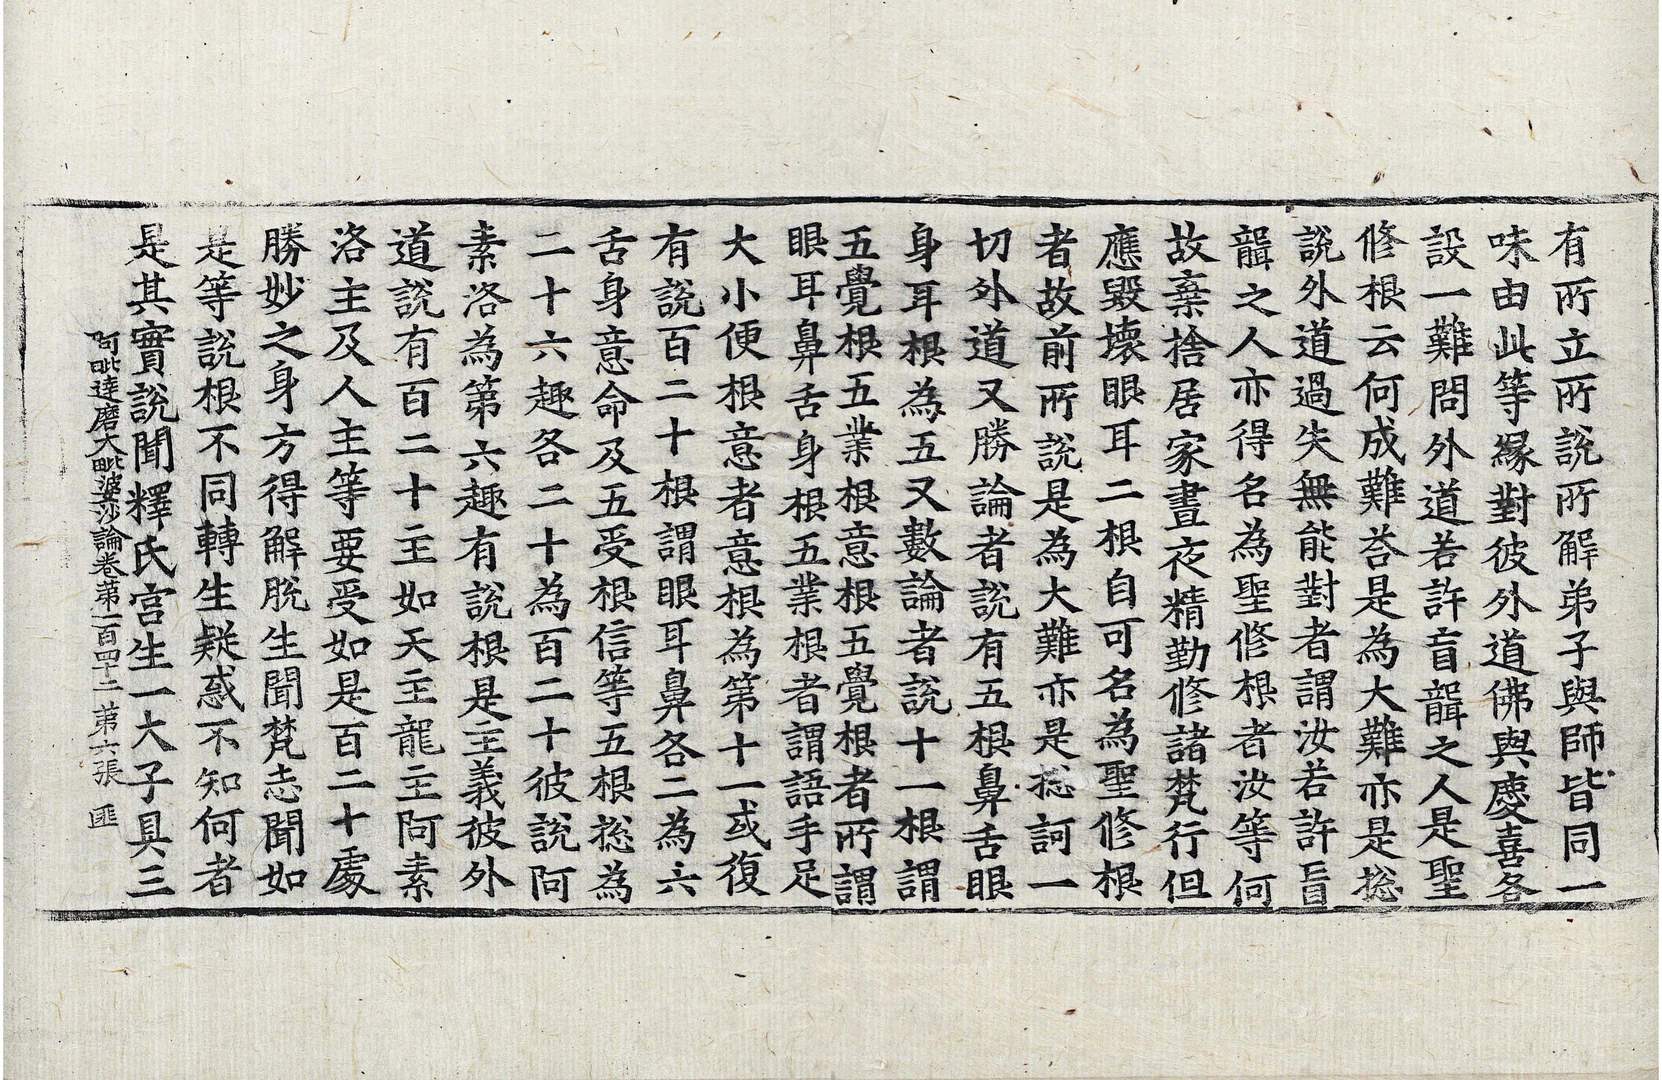 有所立所說所解弟子與師皆同一
味由此等緣對彼外道佛與慶喜各
設一難問外道若許盲聾之人是聖
修根云何成難荅是為大難亦是揔
說外道過失無能對者謂汝若許盲
聾之人亦得名為聖修根者汝等何
故棄捨居家晝夜精勤修諸梵行但
應毀壞眼耳二根自可名為聖修根
者故前所說是為大難亦是揔訶一
切外道又勝論者說有五根鼻舌眼
身耳根為五又數論者說十一根謂
五覺根五業根意根五覺根者所謂
眼耳鼻舌身根五業根者謂語手足
大小便根意者意根為第十一或復
有說百二十根謂眼耳鼻各二為六
舌身意命及五受根信等五根揔為
二十六趣各二十為百二十彼說阿
素洛為第六趣有說根是主義彼外
道說有百二十主如天主龍主阿素
洛主及人主等要受如是百二十處
勝妙之身方得解脫生聞梵志聞如
是等說根不同轉生疑惑不知何者
是其實說聞釋氏宮生一大子具三
阿毗達磨大毗婆沙論卷第一百四十二 第六張 匪